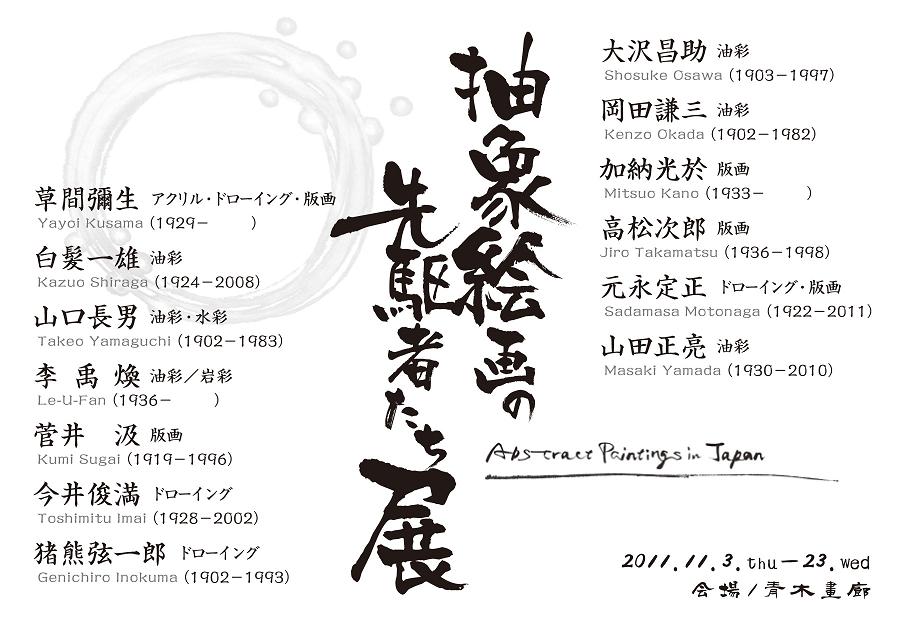 抽象絵画の
先駆者たち展
Abstract Paintings in Japan
大沢昌助 油彩
Shosuke Osawa (1903－1997)
岡田謙三 油彩
Kenzo Okada (1902－1982)
加納光於 版画
Mitsuo Kano (1933－　　)
高松次郎 版画
Jiro Takamatsu (1936－1998)
元永定正 ドローイング・版画
Sadamasa Motonaga (1922－2011)
山田正亮 油彩
Masaki Yamada (1930－2010)
草間彌生 アクリル・ドローイング・版画
Yayoi Kusama (1929－　　)
白髪一雄 油彩
Kazuo Shiraga (1924－2008)
山口長男 油彩・水彩
Takeo Yamaguchi (1902－1983)
李禹煥 油彩／岩彩
Le-U-Fan (1936－　　)
菅井　汲 版画
Kumi Sugai (1919－1996)
今井俊満 ドローイング
Toshimitu Imai (1928－2002)
猪熊弦一郎 ドローイング
Genichiro Inokuma (1902－1993)
2011.11.3.thu－23.wed
会場/青木畫廊